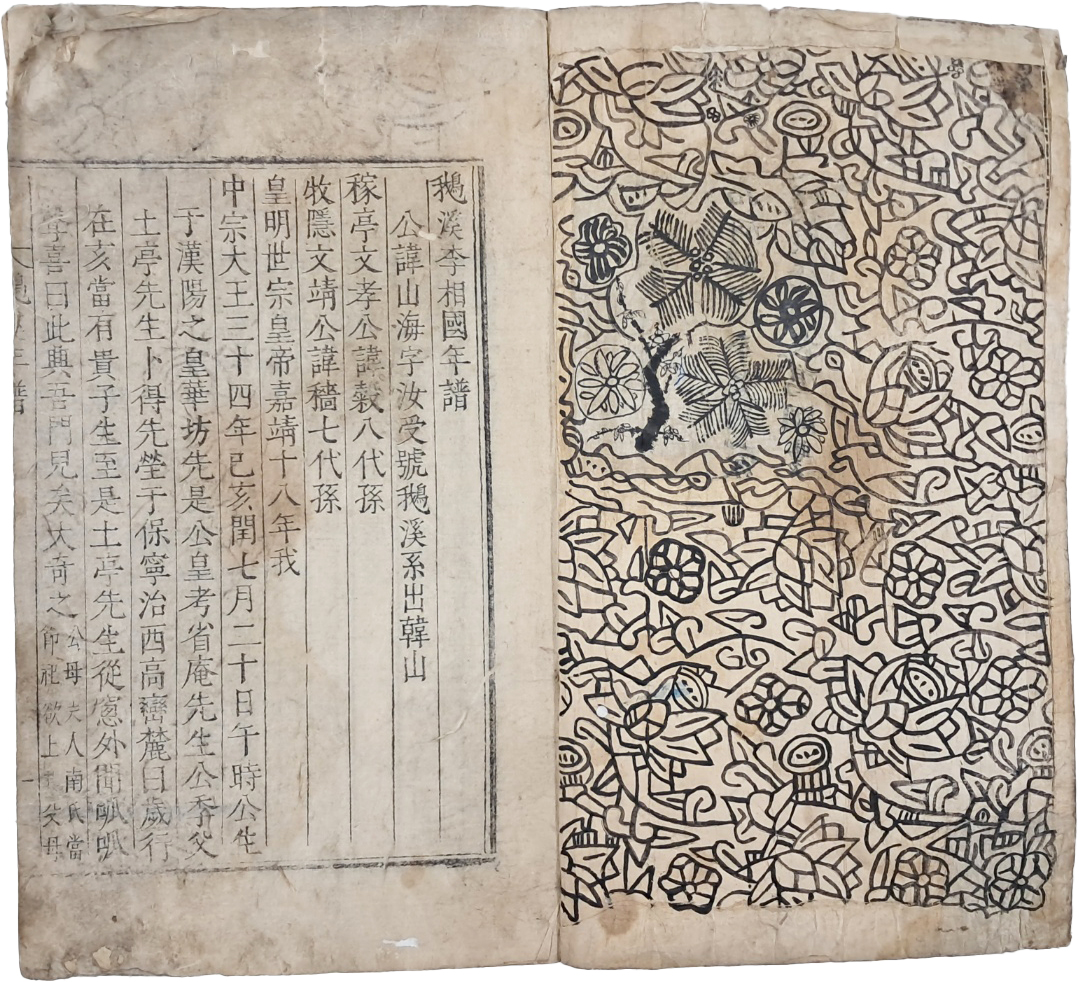 鵝溪李相國年譜
公諱山海字汝受號鵝溪系出韓山
稼亭文孝公諱穀八代孫
牧隱文靖公諱穡七代孫
皇明世宗皇帝嘉靖十八年我
中宗大王三十四年己亥閏七月二十日午時公生
于漢陽之皇華坊先是公皇考省庵先生公季父
土亭先生卜得先塋于保寧治西高巒麓曰歲行
在亥當有貴子生至是土亭先生從窓外聞呱呱
喜曰此興吾門兒矣大奇之
公母夫人南氏當